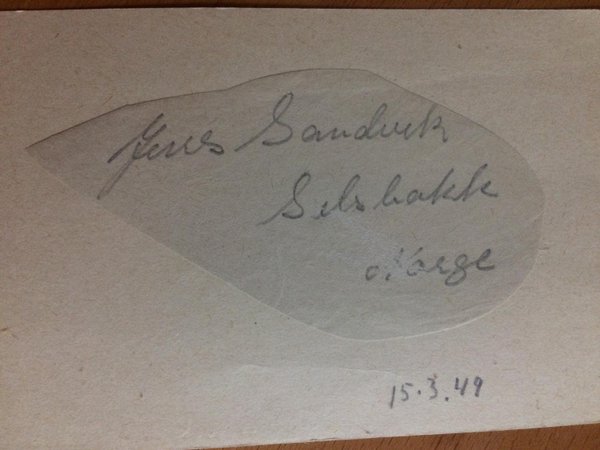 Jens Sandvik
Selsbakk
Norge
15.3.49